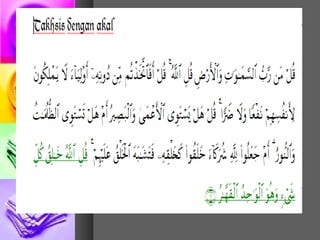 Takhsis dengan akal
قُلْ مَن رَّبُّ ٱلسَّمَٰوَٰتِ وَٱلْأَرْضِ قُلِ ٱللَّهُ ۚ قُلْ أَفَٱتَّخَذْتُم مِّن دُونِهِۦٓ أَوْلِيَآءَ لَا يَمْلِكُونَ
لِأَنفُسِهِمْ نَفْعًا وَلَا ضَرًّا ۚ قُلْ هَلْ يَسْتَوِى ٱلْأَعْمَىٰ وَٱلْبَصِيرُ أَمْ هَلْ تَسْتَوِى ٱلظُّلُمَٰتُ
وَٱلنُّورُ ۗ أَمْ جَعَلُوا۟ لِلَّهِ شُرَكَآءَ خَلَقُوا۟ كَخَلْقِهِۦ فَتَشَٰبَهَ ٱلْخَلْقُ عَلَيْهِمْ ۚ قُلِ ٱللَّهُ خَٰلِقُ كُلِّ
شَىْءٍ وَهُوَ ٱلْوَٰحِدُ ٱلْقَهَّٰرُ